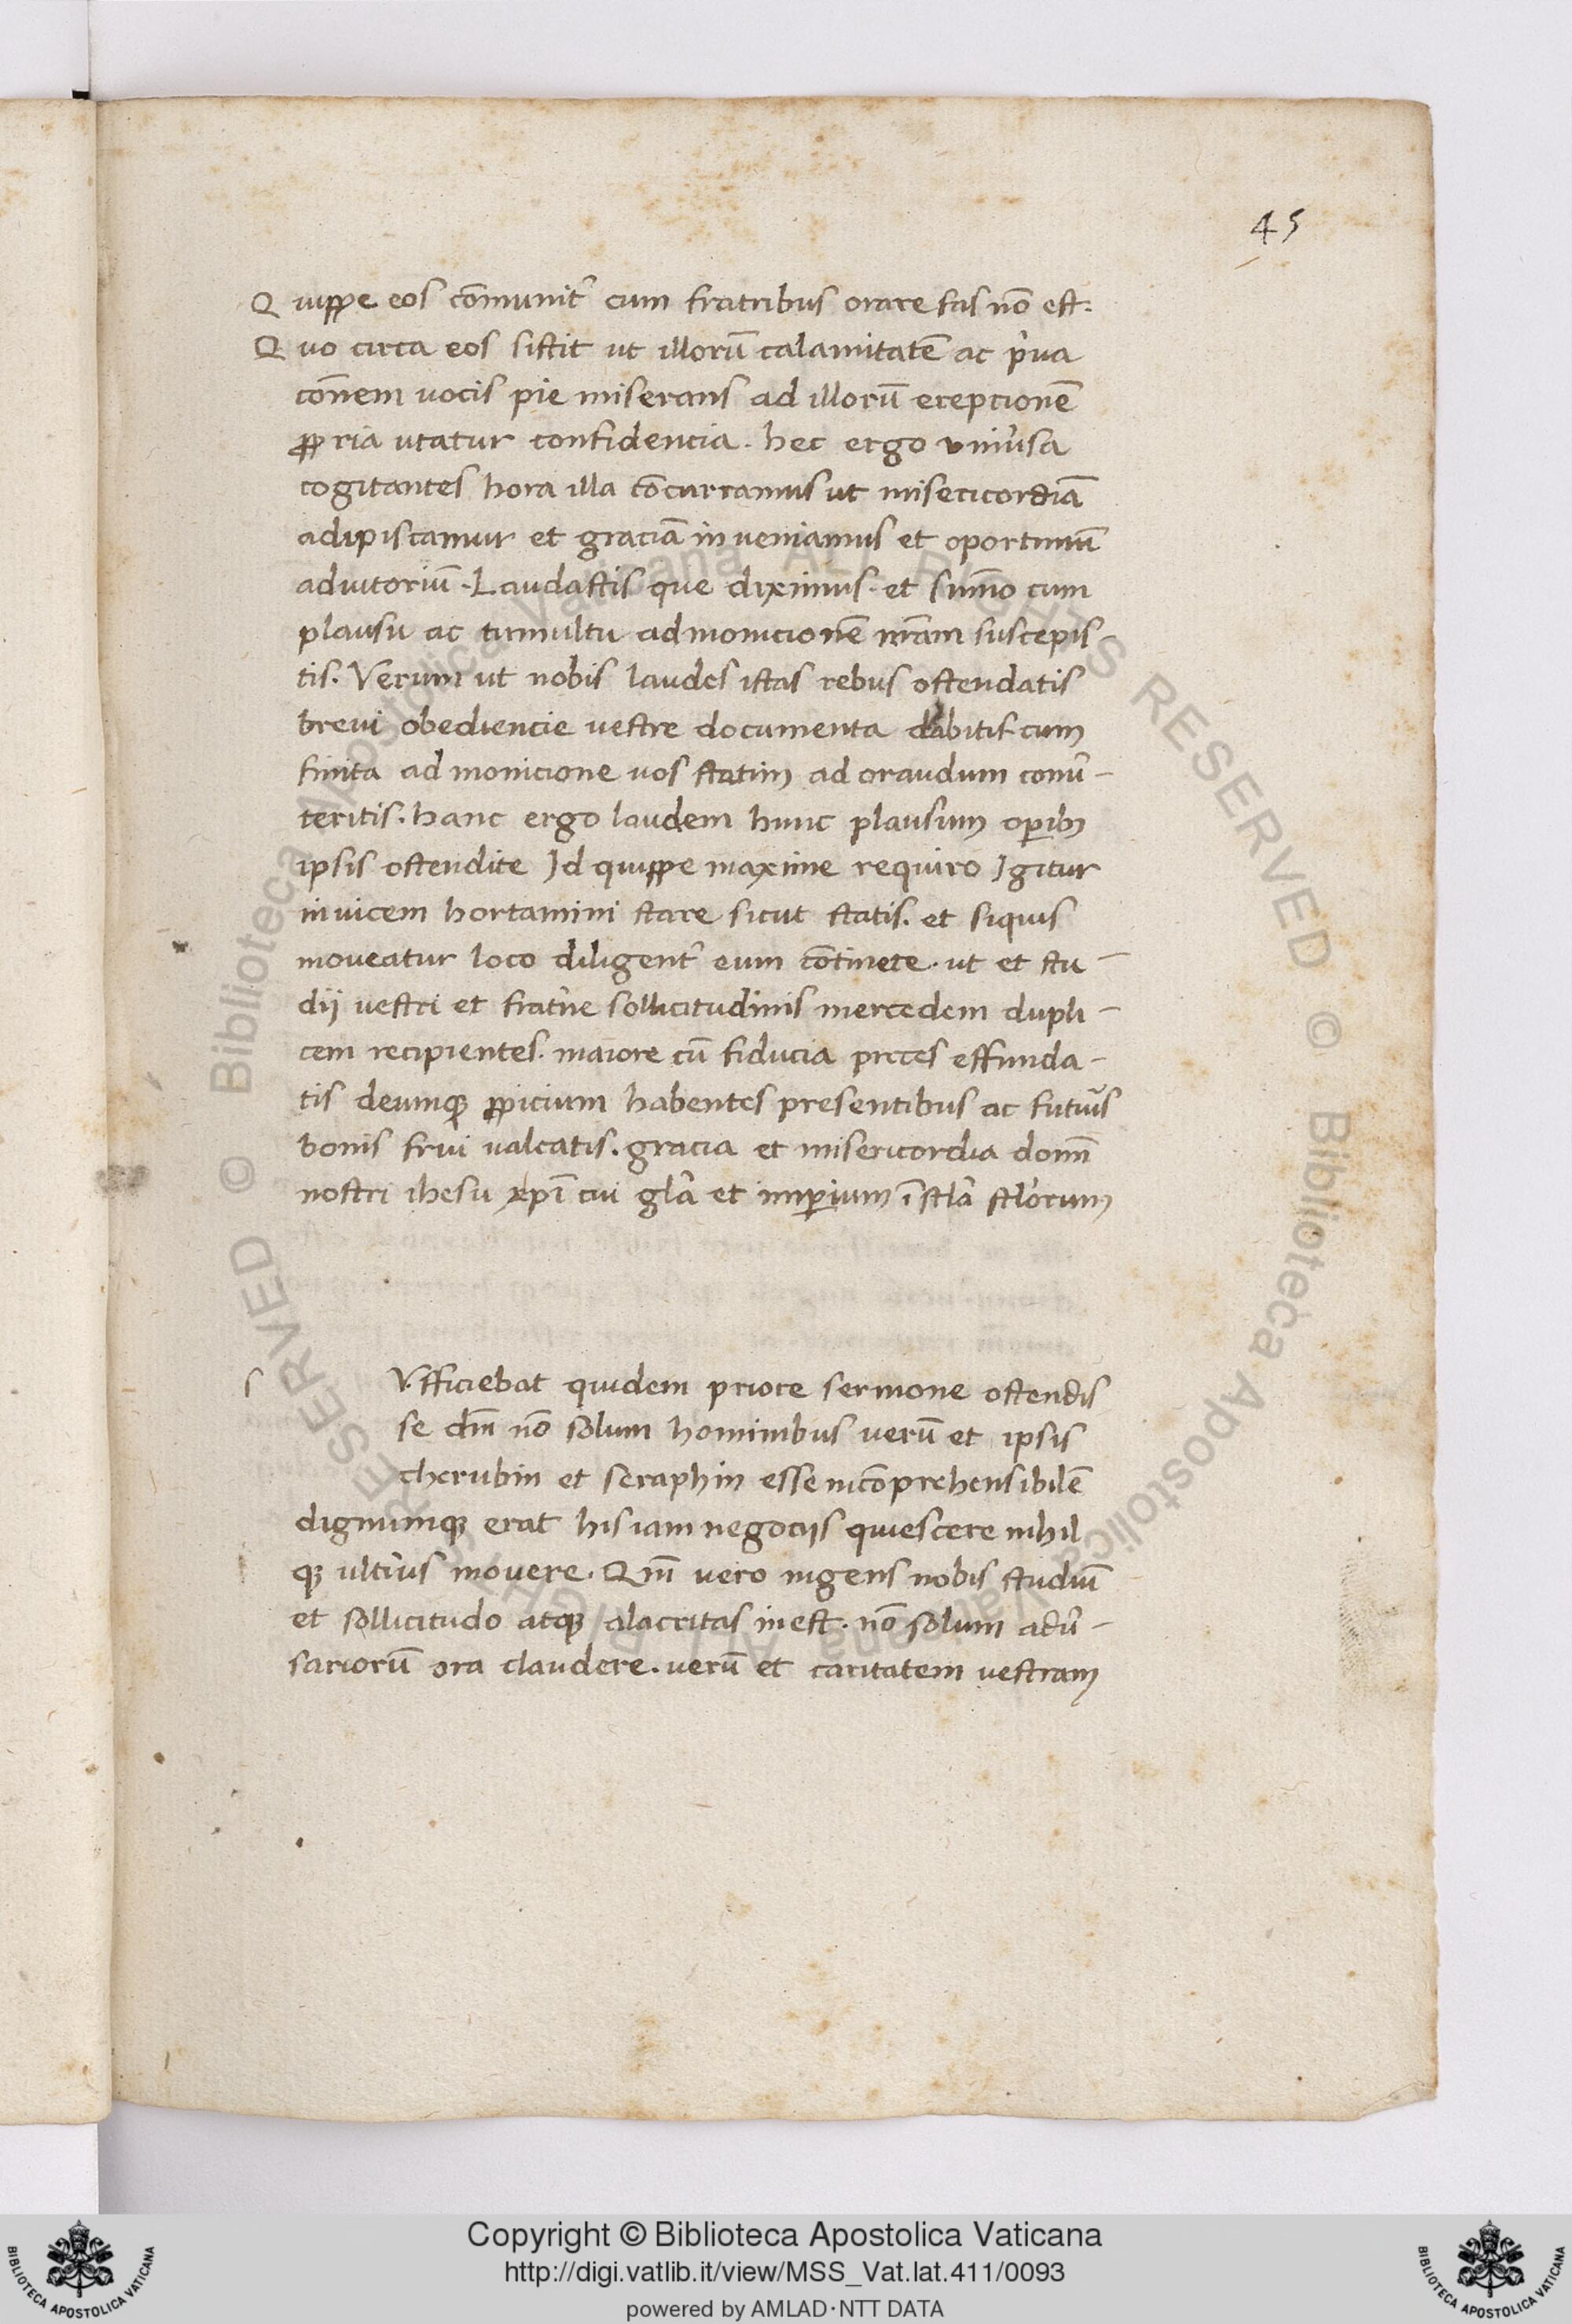 45
Quippe eos cōmunit͛ cum fratribus orare fas nō est.
Quo circa eos sistit ut illorū calamitatē ac p͛ua
cōnem uocis pie miserans ad illorū erepcionē
ꝓpria utatur confidencia. hec ergo uniu͛sa
cogitantes hora illa cōcurramus ut misericordiā
adipiscamur et graciā inueniamus et oportunū
adiutoriū. Laudastis que diximus. et sum̄o cum
plausu ac tumultu admonicionē nr̄am suscepis-
tis. Verum ut nobis laudes istas rebus ostendatis
breui obediencie uestre documenta dabitis cum
finita admonicione uos statim ad orandum conu͛-
teritis. hanc ergo laudem hunc plausum oꝑibꝫ
ipsis ostendite Id quippe maxime requiro Igitur
inuicem hortamini stare sicut statis. et siquis
moueatur loco diligent͛ eum cōtinete. ut et stu-
dij uestri et frat͛ne sollicitudinis mercedem dupli-
cem recipientes. maiore cū fiducia preces effunda-
tis deumqꝫ ꝓpicium habentes presentibus ac futur͛is
bonis frui ualeatis. gracia et misericordia domī
nostri ihesu xp̄i cui gl̄a et imꝑium ī scl̄a scl̄orum
s Vfficiebat quidem priore sermone ostendis
se dm̄ nō solum hominibus uerū et ipsis
cherubin et seraphin esse incōprehensibilē
dignumqꝫ erat his iam negocijs quiescere nihil
qꝫ ult͛ius mouere. Qm̄ uero ingens nobis studiū
et sollicitudo atqꝫ alacritas inest. nō solum adu͛-
sariorū ora claudere. uerū et caritatem uestram
© Biblioteca Apostolica Vaticana ALL RIGHTS RESERVED © Biblioteca Apostolica Vaticana ALL RIGHTS RESERVED
Copyright © Biblioteca Apostolica Vaticana
http://digi.vatlib.it/view/MSS_Vat.lat.411/0093
powered by AMLAD·NTT DATA
BIBLIOTECA APOSTOLICA VATICANA
BIBLIOTECA APOSTOLICA VATICANA